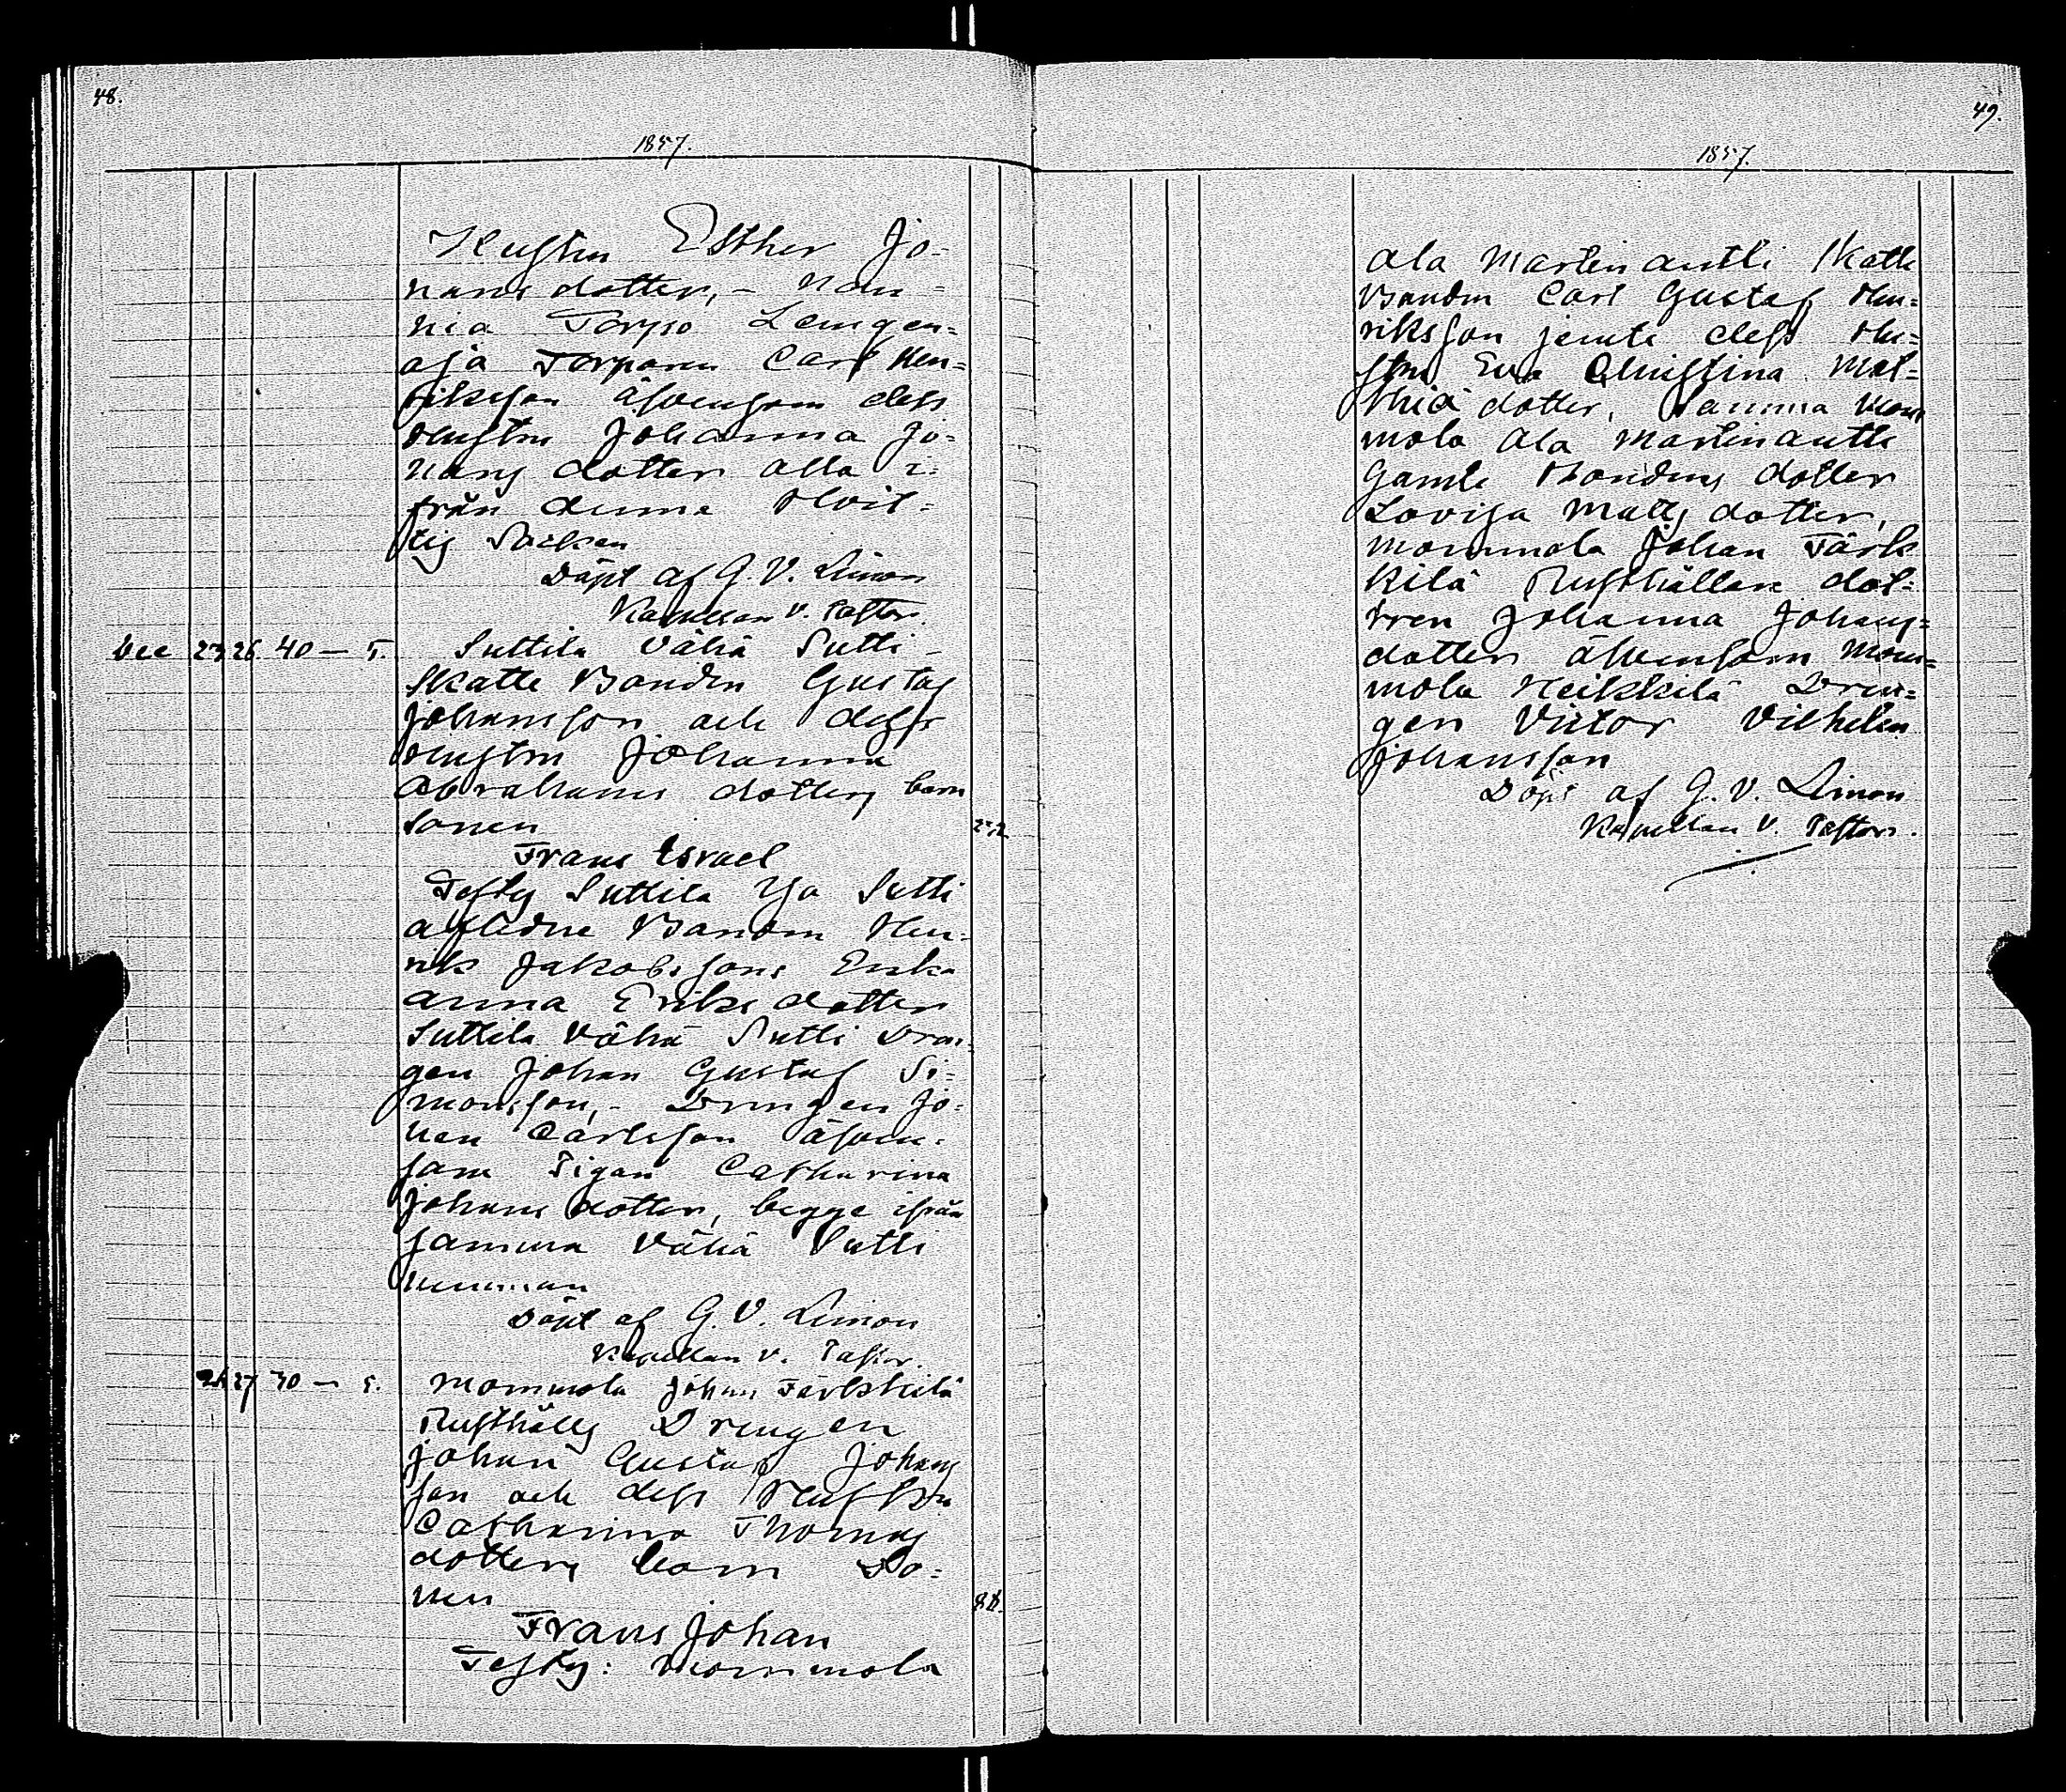 48.
1857.
Hustru Esther Jo=
hans dotter, –
nia Torpo
aja Torparen Carl Hen=
rikson äfvensom dess
Hustru Johanna Jo=
hans dotter alla i=
från denna
Socken
Döpt af G. V. Limon
Kapellan v. Pastor.
Dec 23 26 40 — 5. Suttila Vähä Sutti
Skatte Bonden Gustaf
Johansson och dess
Hustru Johanna
Abrahams dotters barn
Sonen
Frans Israel
Testes Suttila Yso Sutti
aflidne Bonden Hen=
rik Jakobssons Enka
Anna Eriks dotter
Suttila Vähä Sutti Drän=
gen Johan Gustaf Si=
monsson, – Drengen Jo=
han Carlsson äfven=
som Pigan Catharina
Johans dotter, begge ifrån
samma Vähä Sutti
hemman
Döpt af G. V. Limon
Kapellan v. Pastor.
27 30 — 5. Mommola Johan Järkkilä
Rusthålls Drengen
Johan Gustaf Johans
son och dess Hustru
Catharina Thomas
dotters barn So=
nen
Frans Johan
Testes: Mommola
49.
1857.
Ala Martin antti Skatte
Bonden Carl Gustaf Hen=
riksson jemte dess Hu=
stru Eva Christina Mat=
thia dotter, Samma Mom
mola Ala Martin antti
Gamle Bondens dotter
Lovisa Matts dotter,
Mommola Johan Järk
kilä Rusthållare dot=
tren Johanna Johans=
dotter äfvensom Mom=
mola Heikkilä Dren=
gen Victor Vilhelm
Johansson
Döpt af G. V. Limon
Kapellan v. Pastor.